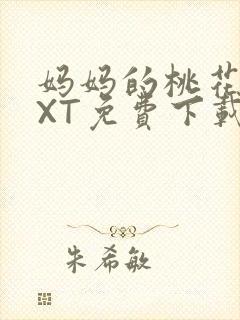 妈妈的桃花
XT免费下载
朱希敏